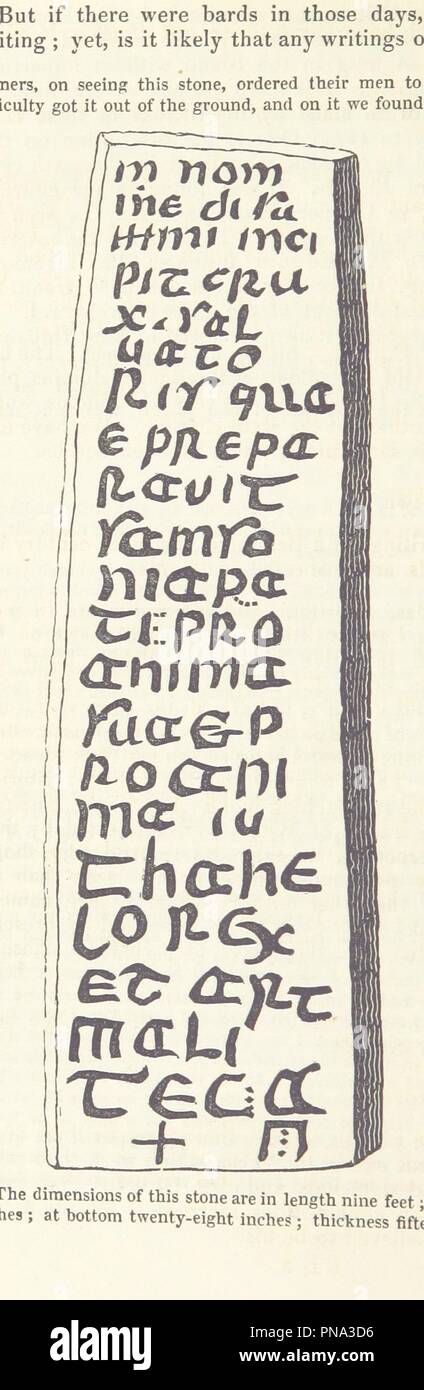 But if there were bards in those days,
iting ; yet, is it likely that any writings o
ners, on seeing this stone, ordered their men to
iculty got it out of the ground, and on it we found
in nom
ine di su
mmi inci
pit cru
x. sal
uato
ris qua
e prepa
rauit
samso
ni apa
te pro
anima
sua & p
ro ani
ma iu
thahe
lo rex
et art
mali
tec a
+ m
The dimensions of this stone are in length nine feet ;
hes ; at bottom twenty-eight inches ; thickness fifte
alamy
alamy
Image ID: PNA3D6
www.alamy.com